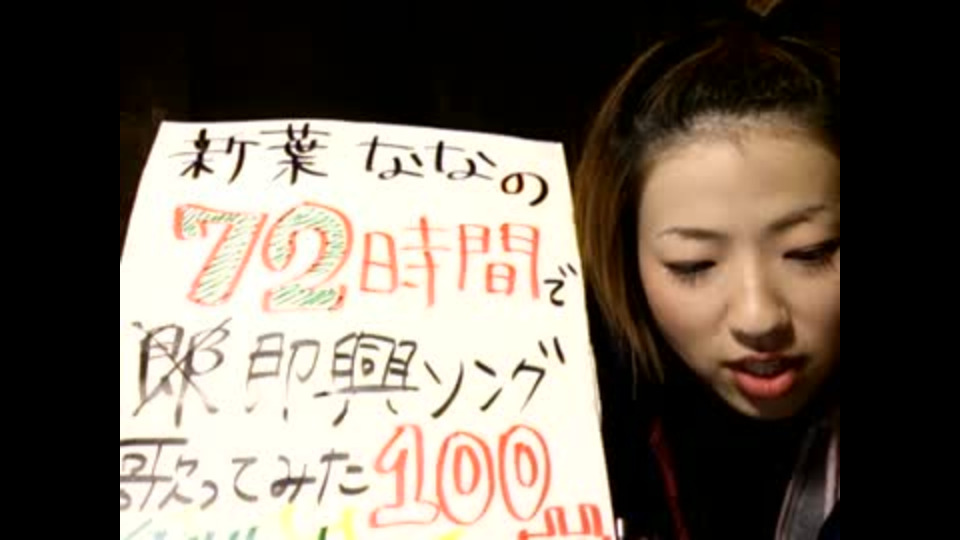 新葉ななの
72時間で
即興ソング
歌ってみた100